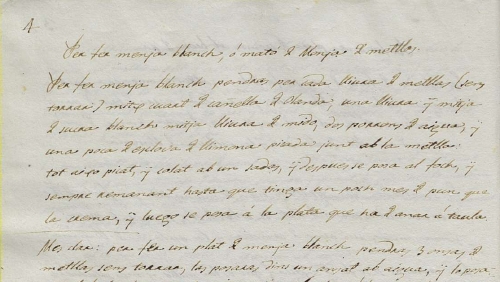 4
Per fer menja blanch, ó mató d Monja d metllas.
Per fer menja blanch pendras per cada lliura d metllas (sens
torrar) mitx cuart d canella d Olanda, una lliura y mitja
d sucre blanch mitja lliura d midó, dos porrons d aigua, y
una poca d escorsa d llimona picada junt ab la metlla:
tot aixo picat, y colat ab un sedas, y despues se posa al foch, y
sempre remanant hasta que tinga un poch mes d punt que
la crema, y luego se posa á la plata que ha d anar á taula.
Mes clar: per fer un plat d menja blanch pendras 3 onsas d
metllas sens torrar, las posaras dins un ab aigua, y